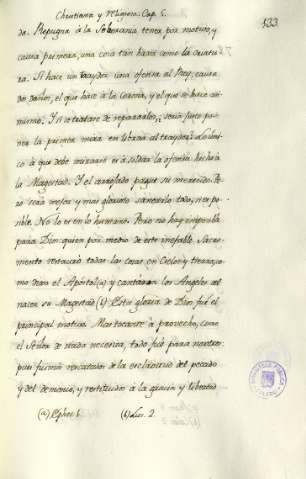 Christiana y Religiosa. Cap. 6.
133
da. Repugna à la Soberania tener por motivo, y
causa primera, una cosa tan baxa como la criatu
ra. Si hace un traydor una ofensa al Rey, causa
dos daños, el que hace à la Corona, y el que se hace asi
mismo. Y si se tratase de repararlos, seria justo po
ner la primera mira en librar al traydor? Lo úni
co à que debe mirarse es à soldar la ofensa hecha à
la Magestad. Y el
pague su merecido. Pe
ro seria mejor y mas glorioso sanearlo todo, si es po
sible. No lo es en lo humano. Pero no hay imposible
para Dios, quien por medio de este inefable Sacra
mento restauró todas las cosas en Cielo y tierra, co
mo dixo el Apóstol (a) y cantaron los Angeles al
nacer su Magestad (b) Esta gloria de Dios fué el
principal motivo. Mas tocante à provecho, como
el Señor de nada necesita, todo fué para nosotros
pues fuimos rescatados de la esclavitud del pecado
y del demonio, y restituidos à la gracia y libertad
(a) Ephes. 1. (b) Luc. 2.